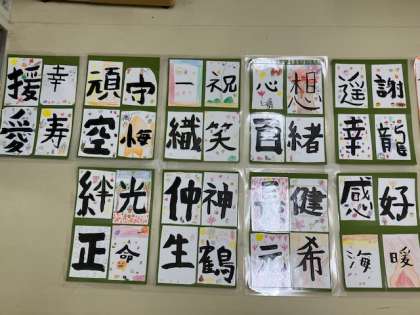 援 幸 頑 守 一 祝 心 想 遥 謝
愛 寿 空 織 笑 緒 幸 龍
絆 光 仲 神 健 感 好
正 命 生 鶴 元 希 海 暖